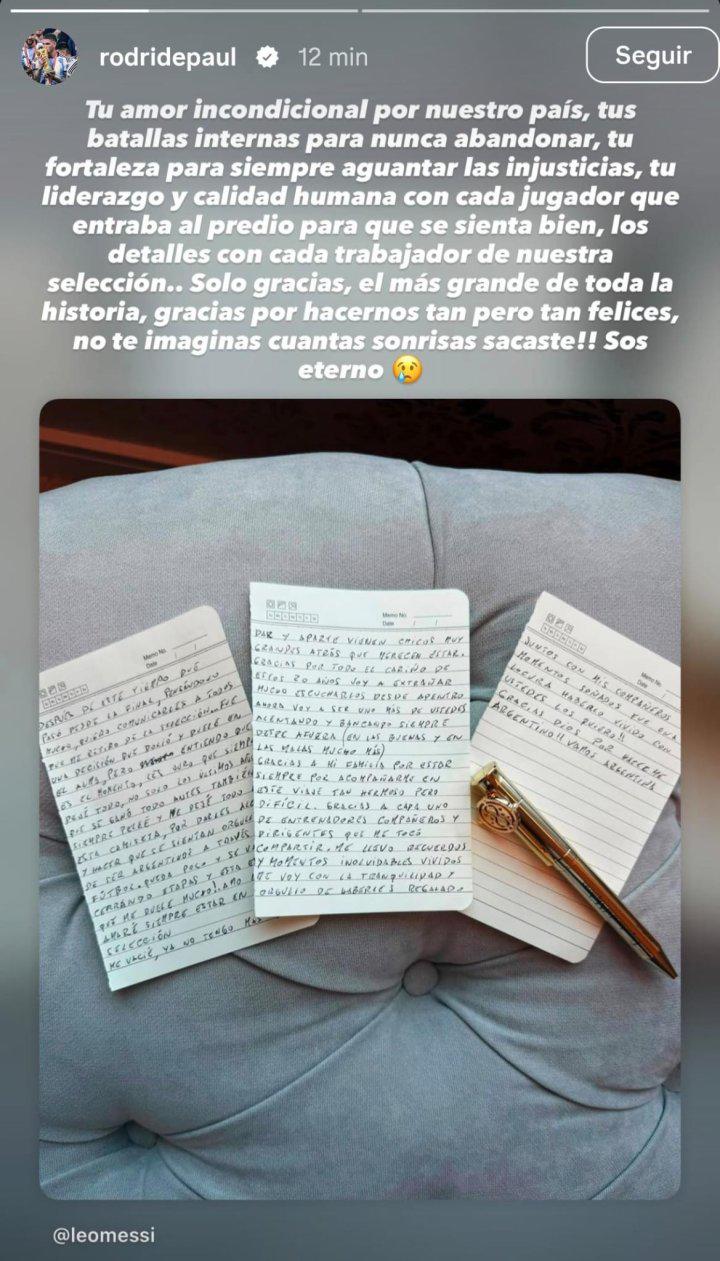 rodridepaul
12 min
Seguir
Tu amor incondicional por nuestro país, tus
batallas internas para nunca abandonar, tu
fortaleza para siempre aguantar las injusticias, tu
liderazgo y calidad humana con cada jugador que
entraba al predio para que se sienta bien, los
detalles con cada trabajador de nuestra
selección.. Solo gracias, el más grande de toda la
historia, gracias por hacernos tan pero tan felices,
no te imaginas cuantas sonrisas sacaste!! Sos
eterno 😢
Memo No.
Date / /
DESPUES DE ESTE TIEMPO QUE
PASÓ DESDE LA FINAL, PENSÁNDOLO
MUCHO, QUIERO COMUNICARLES A TODOS
QUE ME RETIRO DE LA SELECCIÓN. FUE
UNA DECISIÓN QUE DOLIÓ Y DUELE EN
EL ALMA, PERO ENTIENDO QUE
ES EL MOMENTO. LES JURO QUE SIEMPRE
DEJÉ TODO, NO SOLO LOS ULTIMOS AÑOS
QUE SE GANÓ TODO, ANTES TAMBIÉN
SIEMPRE PELEÉ Y ME DEJÉ TODO
ESTA CAMISETA, POR DARLES
Y HACER QUE SE SIENTAN
DE SER ARGENTINOS A TRAVÉS
FÚTBOL. QUEDA POCO Y SE
CERRANDO ETAPAS Y ESTA
QUE ME DUELE MUCHO!. AMO,
AMARÉ SIEMPRE ESTAR EN
SELECCIÓN
ME VACIÉ, YA NO TENGO
Memo No.
Date / /
DAR Y APARTE VIENEN CHICOS MUY
GRANDES ATRÁS QUE MERECEN ESTAR.
GRACIAS POR TODO EL CARIÑO DE
ESTOS 20 AÑOS VOY A EXTRAÑAR
MUCHO ESCUCHARLOS DESDE ADENTRO
AHORA VOY A SER UNO MÁS DE USTEDES
ALENTANDO Y BANCANDO SIEMPRE
DESDE AFUERA (EN LAS BUENAS Y EN
LAS MALAS MUCHO MÁS)
GRACIAS A MI FAMILIA POR ESTAR
SIEMPRE POR ACOMPAÑARME EN
ESTE VIAJE TAN HERMOSO PERO
DIFÍCIL. GRACIAS A CADA UNO
DE ENTRENADORES COMPAÑEROS Y
DIRIGENTES QUE ME TOCÓ
COMPARTIR. ME LLEVO RECUERDOS
Y MOMENTOS INOLVIDABLES VIVIDOS
ME VOY CON LA TRANQUILIDAD Y
ORGULLO DE HABERLES REGALADO
Memo No.
Date
JUNTOS CON MIS COMPAÑEROS
MOMENTOS SOÑADOS QUE
LOCURA HABERLO VIVIDO CON
USTEDES LOS QUIERO!!
GRACIAS DIOS POR HACERME
ARGENTINO!! VAMOS ARGENTINA
@leomessi